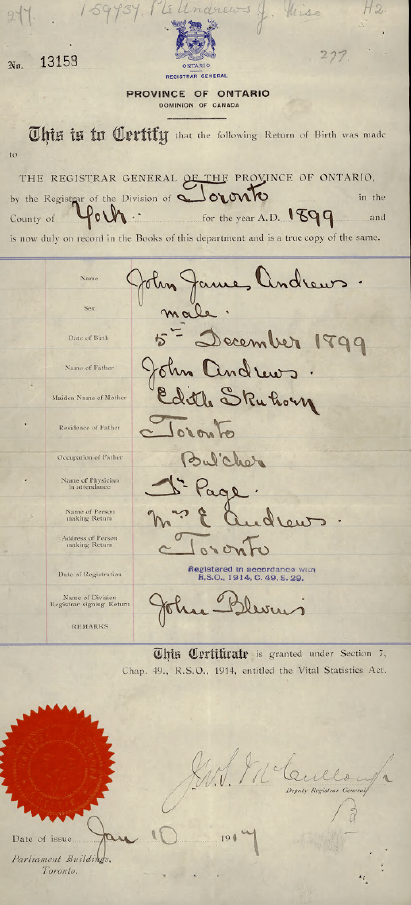 277 159737 McAndrews J. Misc H2
No. 13159
277
ONTARIO
REGISTRAR GENERAL
PROVINCE OF ONTARIO
DOMINION OF CANADA
This is to Certify that the following Return of Birth was made
to
THE REGISTRAR GENERAL OF THE PROVINCE OF ONTARIO,
by the Registrar of the Division of Toronto in the
County of York for the year A.D. 1899 and
is now duly on record in the Books of this department and is a true copy of the same.
Name John James Andrews.
Sex male.
Date of Birth 5th December 1899
Name of Father John Andrews.
Maiden Name of Mother Edith Skuhorn
Residence of Father Toronto
Occupation of Father Butcher
Name of Physician
in attendance Dr Page.
Name of Person
making Return Mrs E Andrews.
Address of Person
making Return Toronto
Date of Registration Registered in accordance with
R.S.O., 1914, C. 49, S. 29.
Name of Division
Registrar signing Return John Blevins
REMARKS
This Certificate is granted under Section 7,
Chap. 49., R.S.O., 1914, entitled the Vital Statistics Act.
Jw.S. McCullough
Deputy Registrar General
B
Date of issue Jan 10 1917
Parliament Buildings,
Toronto.